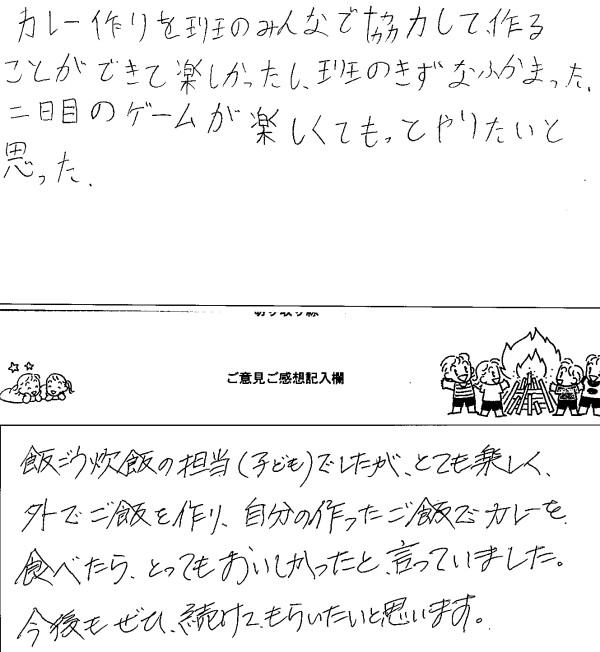 カレー作りを班のみんなで協力して、作る
ことができて楽しかったし、班のきずなふかまった。
二日目のゲームが楽しくてもってやりたいと
思った。
切り取り線
ご意見ご感想記入欄
飯ごう炊飯の担当(子ども)でしたが、とても楽しく、
外でご飯を作り、自分の作ったご飯でカレーを
食べたら、とってもおいしかったと、言っていました。
今後もぜひ、続けてもらいたいと思います。